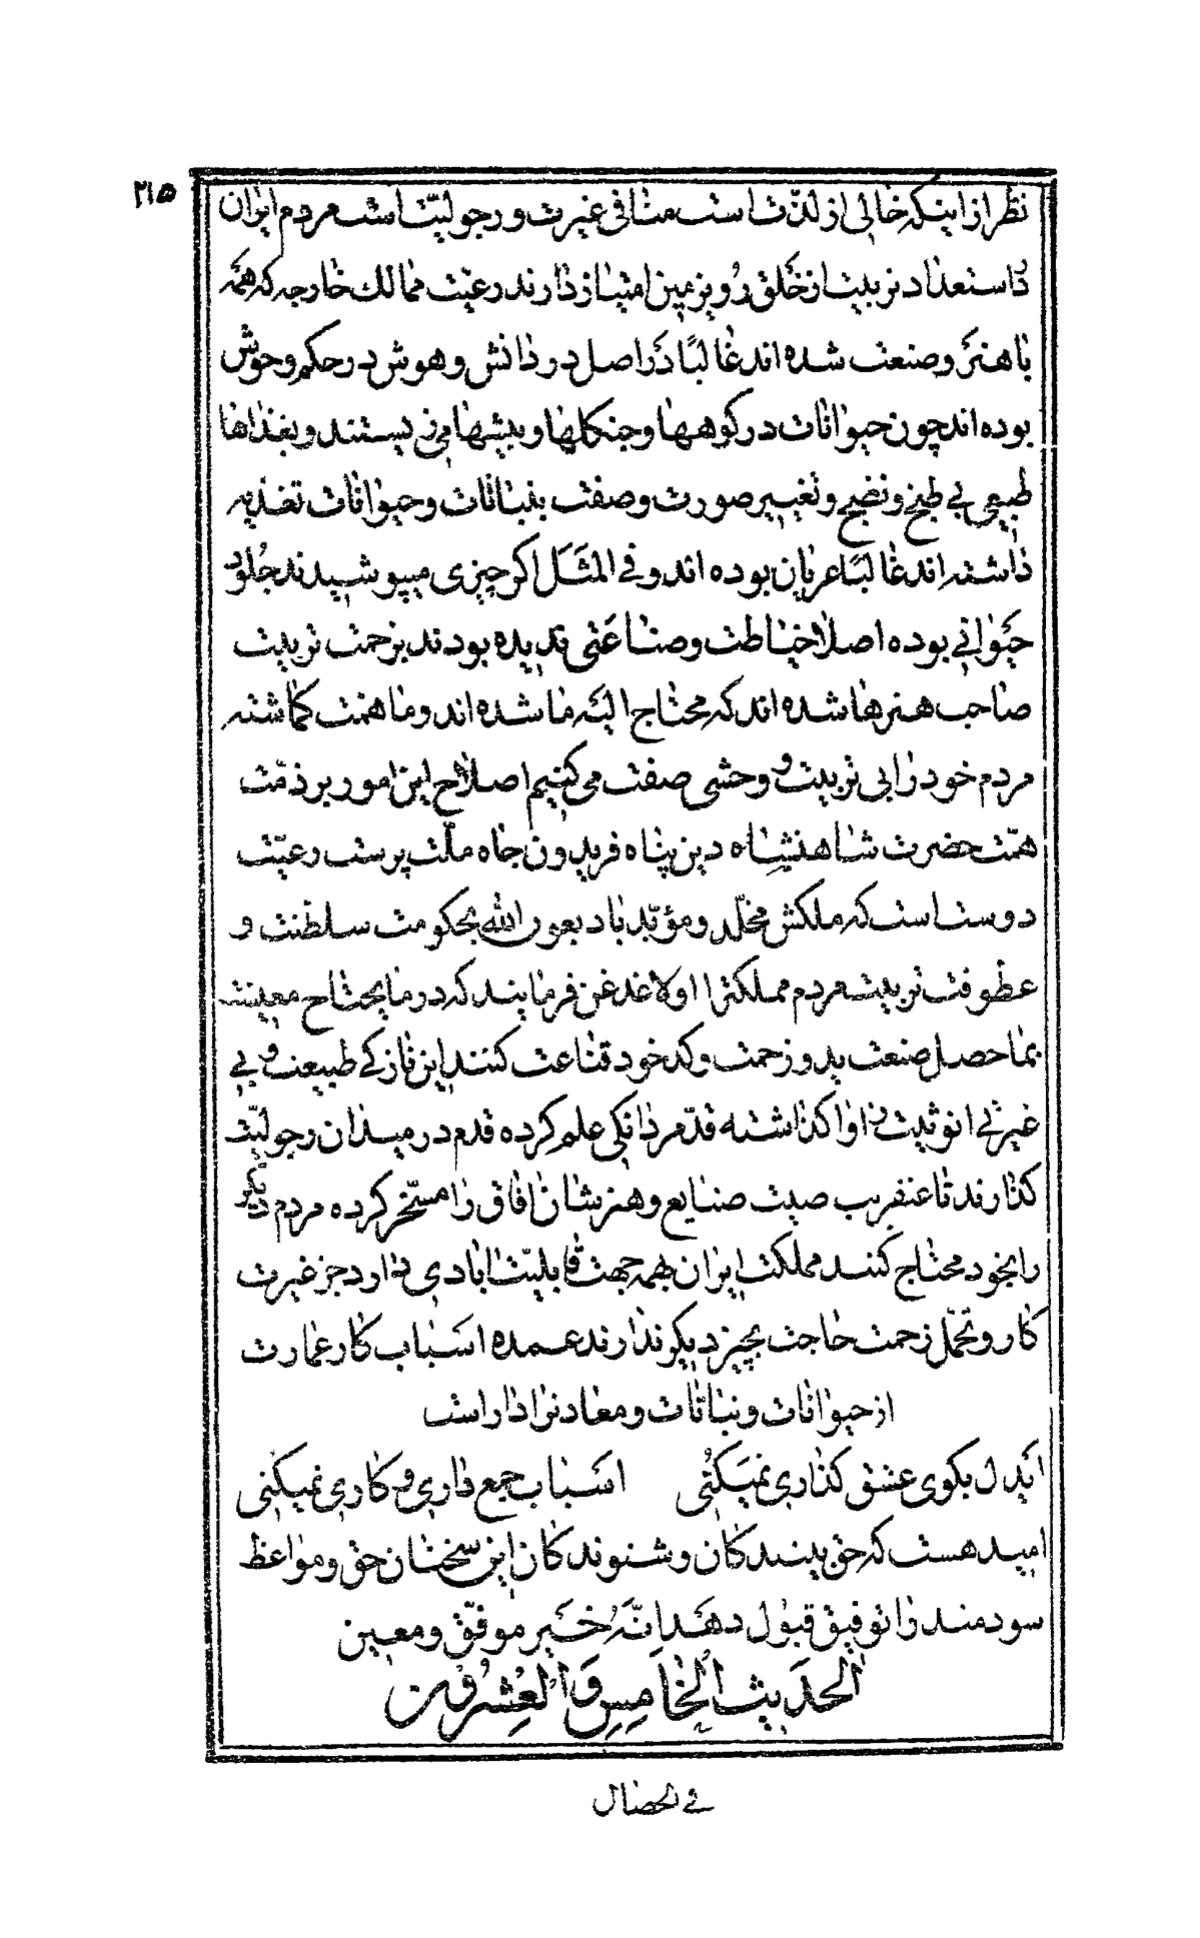 ۲۱۵
نظر از اینکه خالی از لذّت است منافی غیرت و رجولیّت است مردم ایران
با استعداد تربیت از خلق روی زمین امتیاز دارند رعیت ممالک خارجه که همه
با هنر و صنعت شده اند غالبًا در اصل در دانش و هوش در حکم وحوش
بوده اند چون حیوانات در کوهها و جنکلها و بیشها می زیستند و بغذاها
طبیعی بی طبخ و نضج و تغییر صورت و صفت بنباتات و حیوانات تغذیه
داشته اند غالبًا عریان بوده اند و فی المثل اکر چیزی میپوشیدند جلود
حیوانی بوده اصلا خیاطت و صناعتی ندیده بودند بزحمت تربیت
صاحب هنرها شده اند که محتاج الیه ما شده اند و ما همت کماشته
مردم خود را بی تربیت و وحشی صفت می کنیم اصلاح این امور بر ذمّت
همّت حضرت شاهنشاه دین پناه فریدون جاه ملّت پرست رعیّت
دوست است که ملکش مخلّد و مؤیّد باد بعون الله بحکومت سلطنت و
عطوفت تربیت مردم مملکترا اولا غدغن فرمایند که در مایحتاج معیشت
بما حصل صنعت ید و زحمت و کد خود قناعت کنند این نازکی طبیعت و بی
غیرتی انوثیت را واکذاشته قدّ مردانکی علم کرده قدم در میدان رجولیّت
کذارند تا عنقریب صیت صنایع و هنرشان آفاق را مسخّر کرده مردم دیکر
را بخود محتاج کنند مملکت ایران همه جهت قابلیّت آبادی دارد جز غیرت
کار و تحمّل زحمت حاجت بچیز دیکر ندارند عمده اسباب کار عمارت
از حیوانات و نباتات و معادن را داراست
ایدل بکوی عشق کذاری نمیکنی اسباب جمع داری و کاری نمیکنی
امید هست که حق بینندکان و شنوندکان این سخنان حق و مواعظ
سودمند را توفیق قبول دهد انّه خیر موفّق و معین
الحدیث الخامس و العشرون
فی الخصال